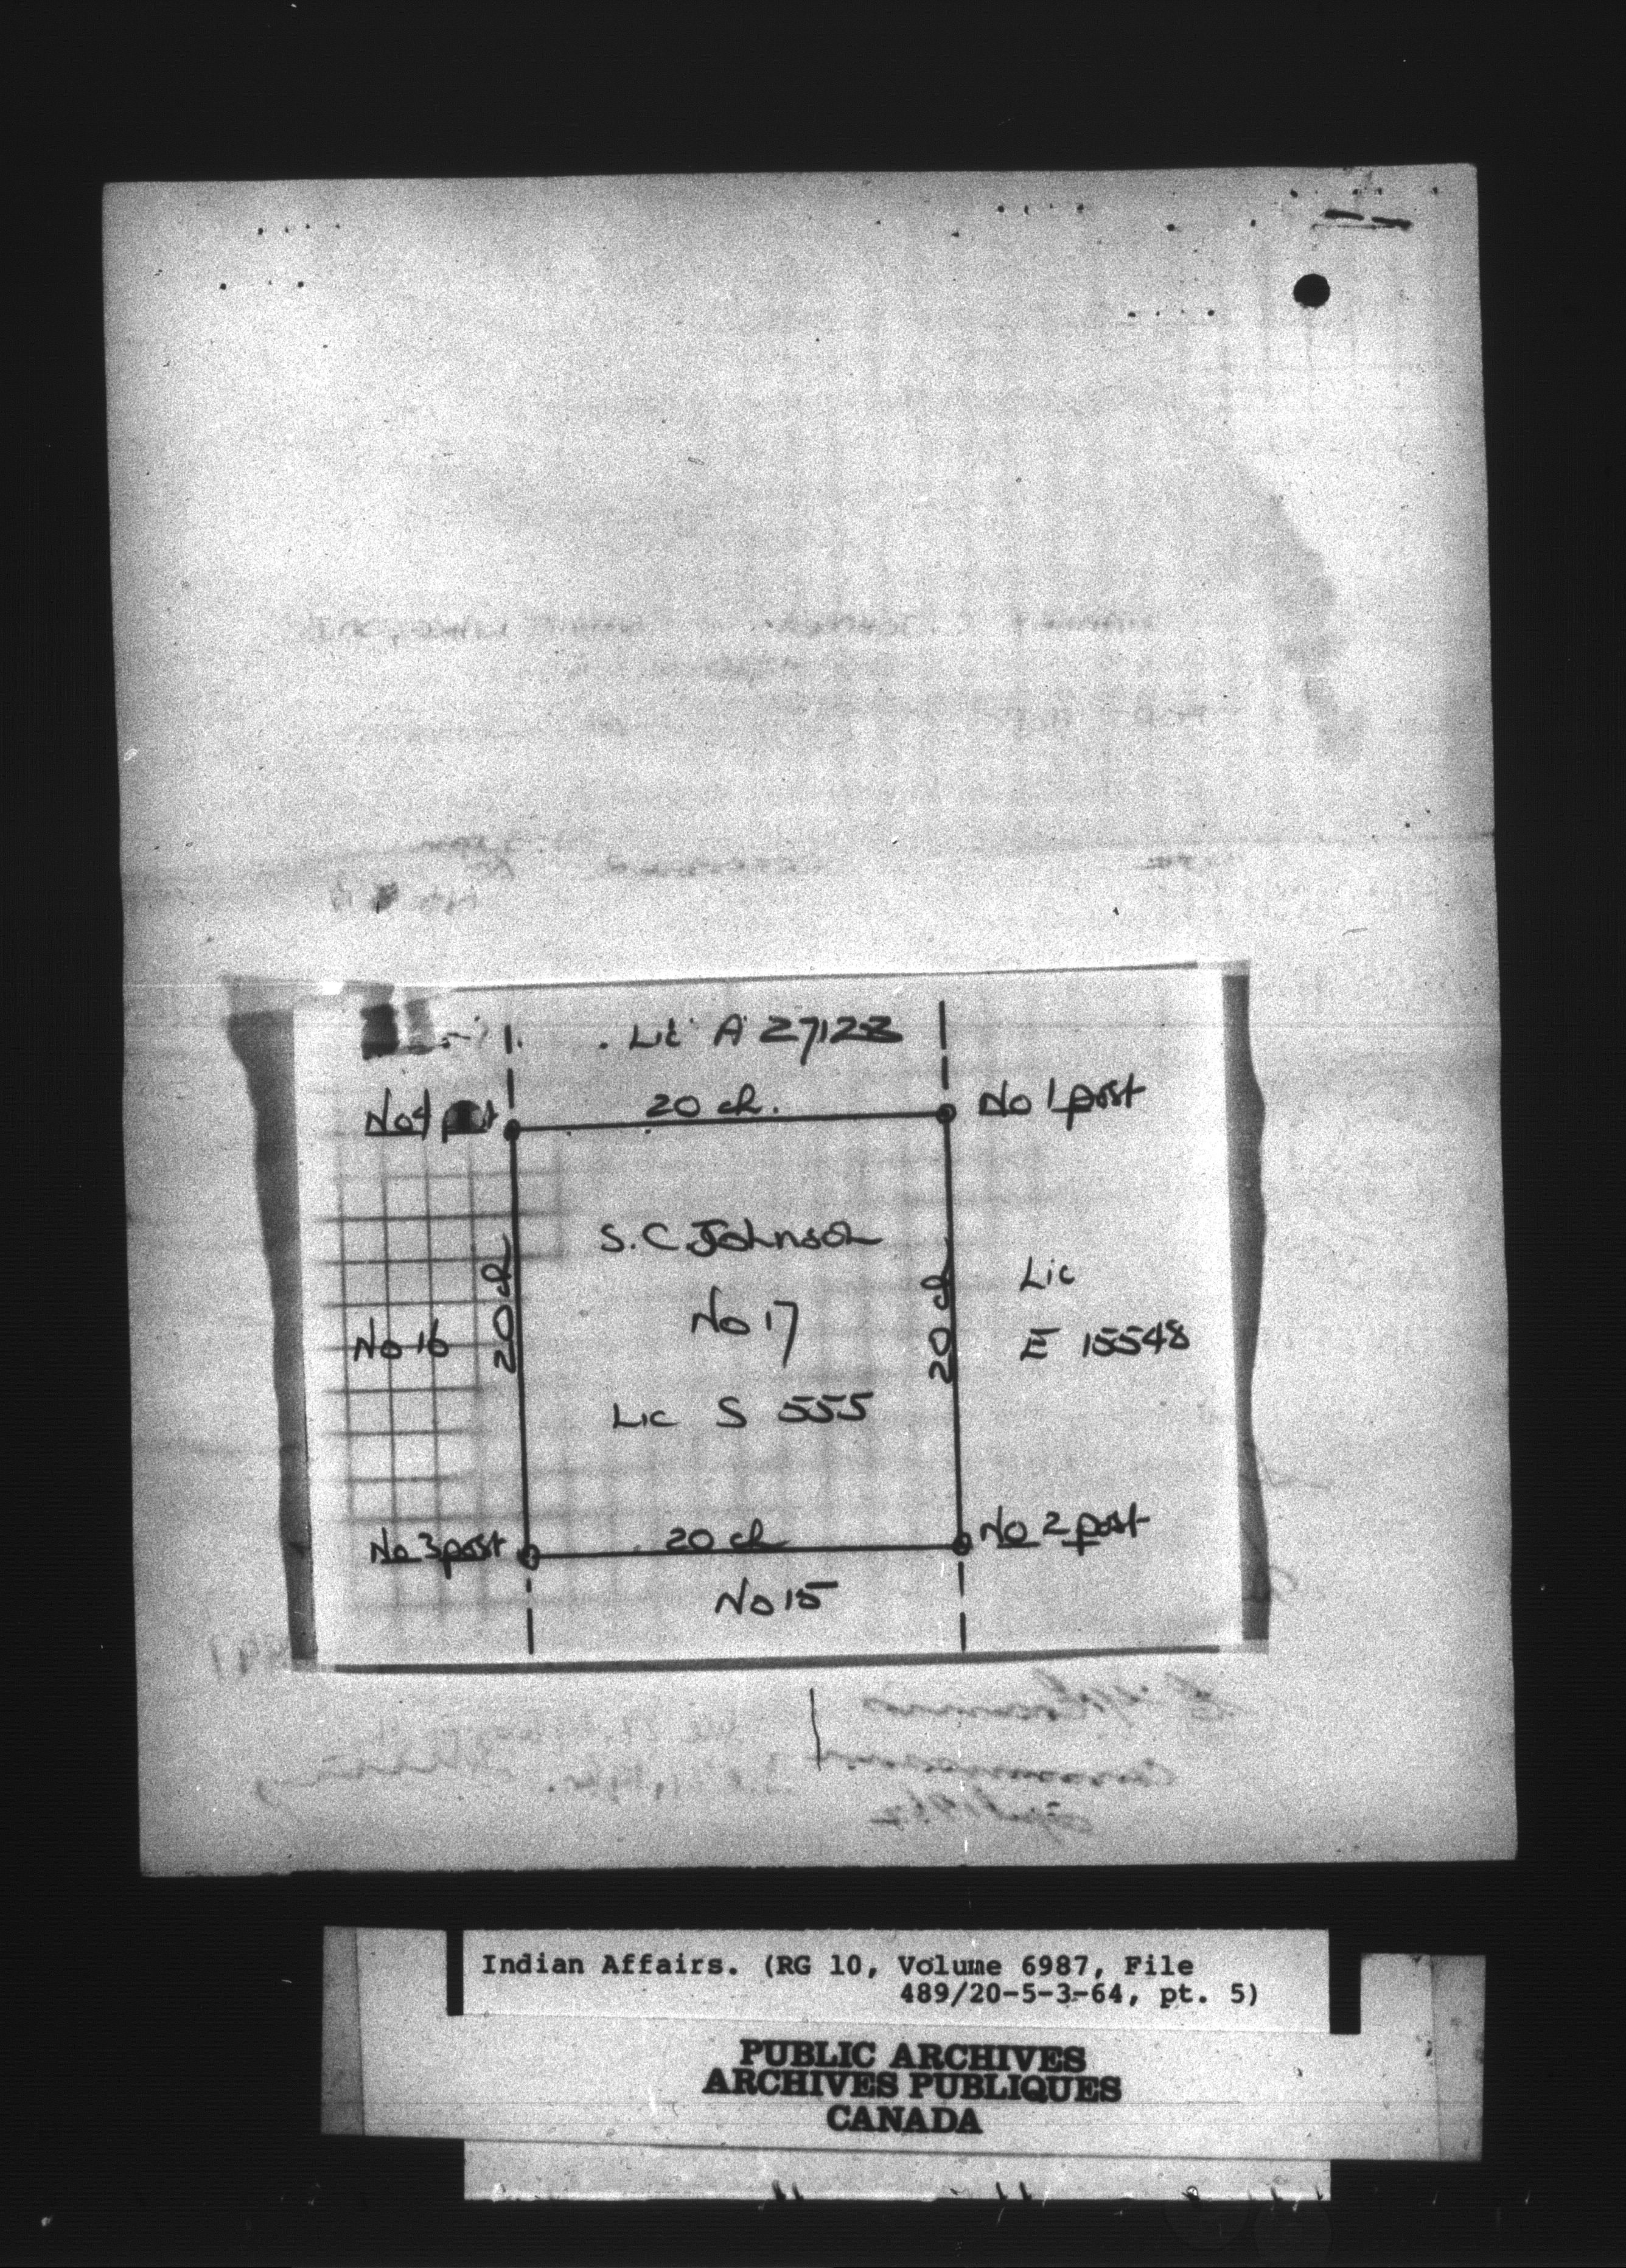 Lic A 27123
No 4 post
20 ch.
No 1 post
S.C. Johnson
No 17
Lic S 555
20 ch
20 ch
No 16
Lic
E 15548
No 3 post
20 ch
No 2 post
No 15
Indian Affairs. (RG 10, Volume 6987, File
489/20-5-3-64, pt. 5)
PUBLIC ARCHIVES
ARCHIVES PUBLIQUES
CANADA